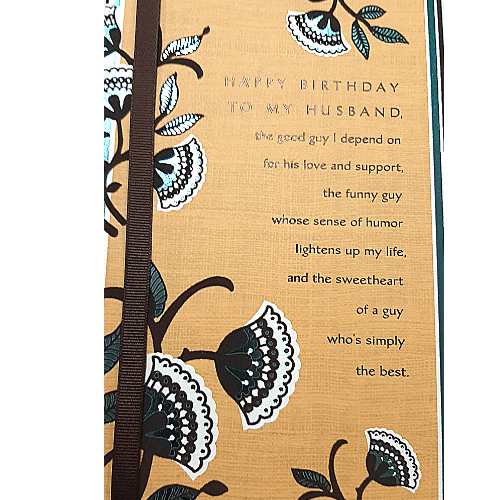 HAPPY BIRTHDAY
TO MY HUSBAND,
the good guy I depend on
for his love and support,
the funny guy
whose sense of humor
lightens up my life,
and the sweetheart
of a guy
who's simply
the best.